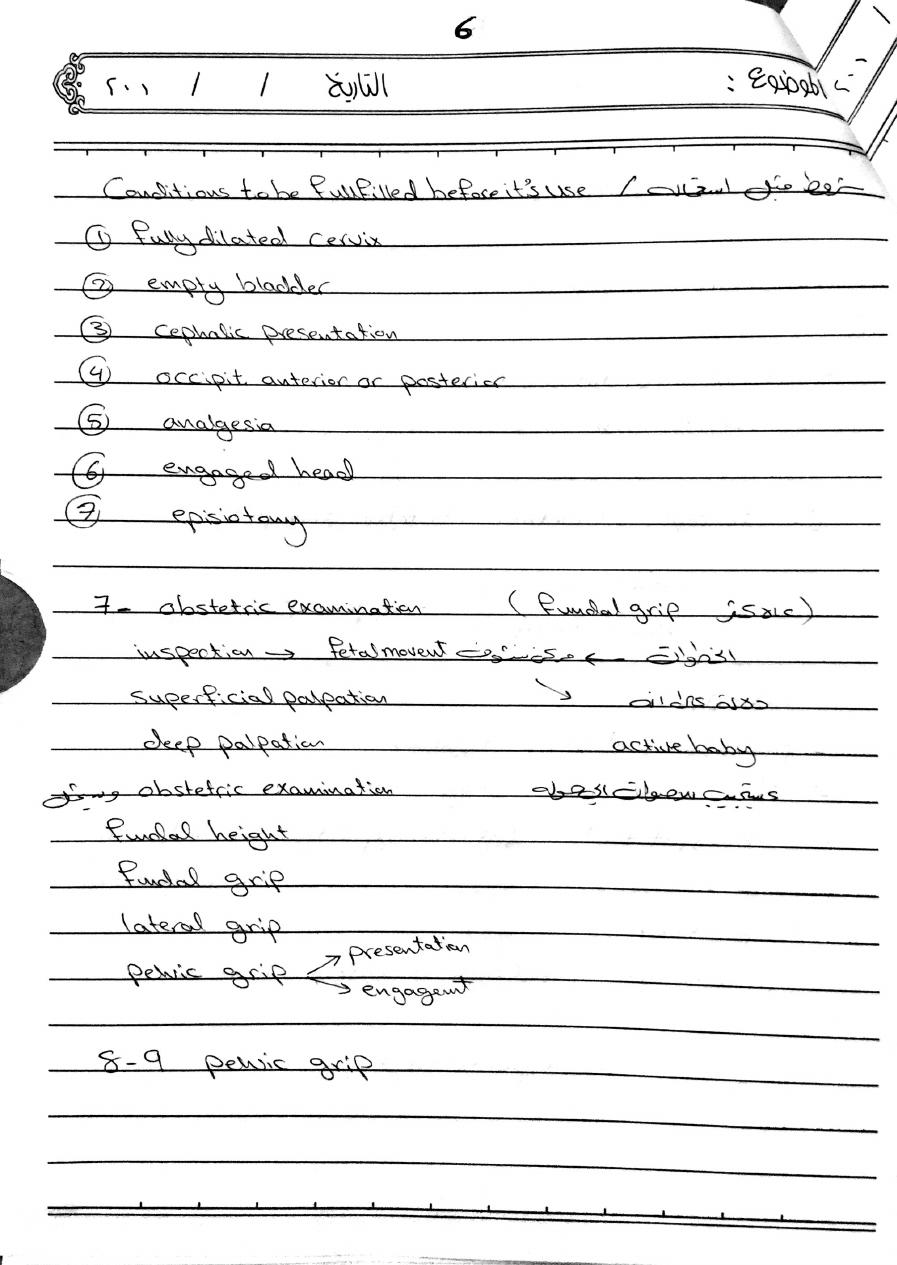 6
الموضوع : التاريخ / / ٢٠٠١
Conditions to be fullfilled before it's use / شروط قبل استخدامه
① fully dilated cervix
② empty bladder
③ cephalic presentation
④ occipit anterior or posterior
⑤ analgesia
⑥ engaged head
⑦ episiotomy
7- obstetric examination (fundal grip)
inspection → fetal movent ← الخطوات
superficial palpation
deep palpation active baby
obstetric examination
fundal height
fundal grip
lateral grip
pelvic grip → presentation
→ engagemt
8-9 pelvic grip